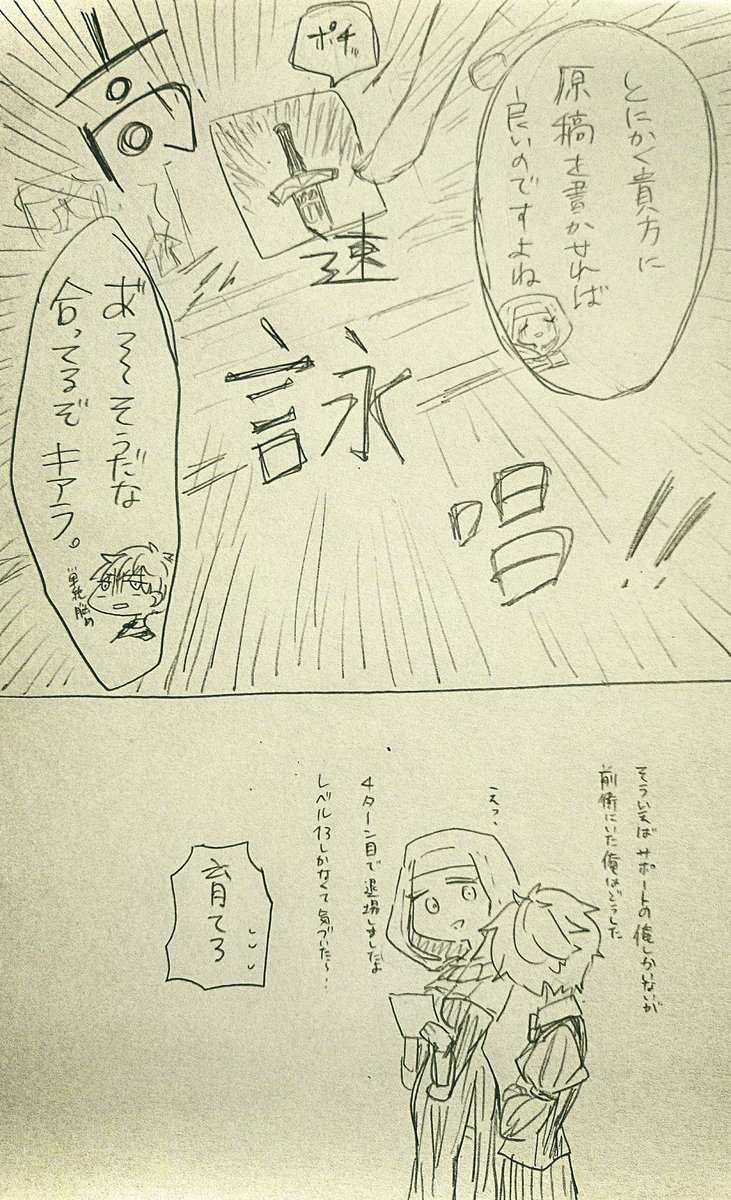 とにかく貴方に
原稿を書かせれば
良いのですよね
ポチッ
高
速
詠
唱
!!
そうだな
合ってるぞキアラ。
単純脳め
そういえばサポートの俺しかいないが
前衛にいた俺はどうした
えっ、
4ターン目で退場しましたよ
レベル13しかなくて気づいたら…
育てろ